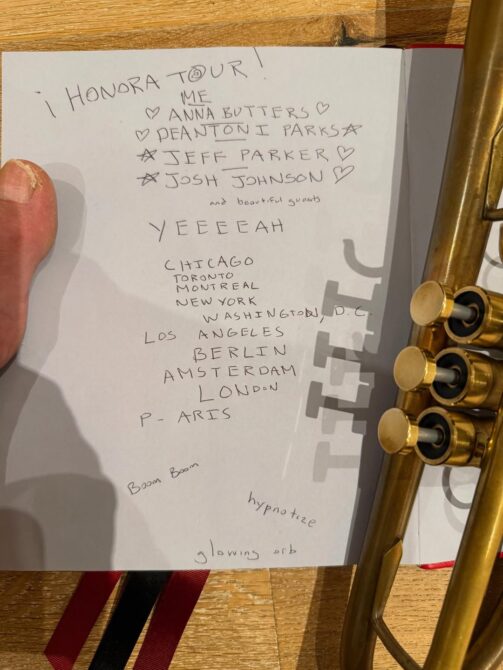 ¡ HONORA TOUR!
ME
♡ ANNA BUTTERS ♡
♡ DEANTONI PARKS ☆
☆ JEFF PARKER ♡
☆ JOSH JOHNSON ♡
and beautiful guests
YEEEEAH
CHICAGO
TORONTO
MONTREAL
NEW YORK
WASHINGTON, D.C.
LOS ANGELES
BERLIN
AMSTERDAM
LONDON
P- ARIS
Boom Boom
hypnotize
glowing orb